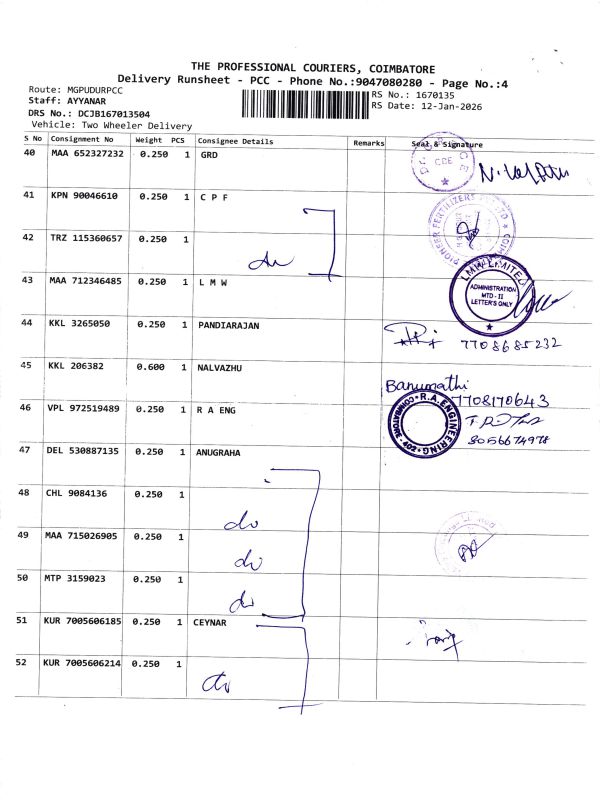 THE PROFESSIONAL COURIERS, COIMBATORE
Delivery Runsheet - PCC - Phone No.:9047080280 - Page No.:4
Route: MGPUDURPCC
Staff: AYYANAR
DRS No.: DCJB167013504
Vehicle: Two Wheeler Delivery
RS No.: 1670135
RS Date: 12-Jan-2026
S No Consignment No Weight PCS Consignee Details Remarks Seal & Signature
40 MAA 652327232 0.250 1 GRD
CCE
41 KPN 90046610 0.250 1 C P F
PIONEER FERTILIZERS
42 TRZ 115360657 0.250 1
do
43 MAA 712346485 0.250 1 L M W
LMW LIMITED
ADMINISTRATION
MTD - II
LETTER'S ONLY
44 KKL 3265050 0.250 1 PANDIARAJAN
7708685232
45 KKL 206382 0.600 1 NALVAZHU
Banumathi
7708170643
46 VPL 972519489 0.250 1 R A ENG
R.A. ENGINEERING
COIMBATORE - 402
8056674978
47 DEL 530887135 0.250 1 ANUGRAHA
48 CHL 9084136 0.250 1
do
49 MAA 715026905 0.250 1
do
50 MTP 3159023 0.250 1
do
51 KUR 7005606185 0.250 1 CEYNAR
52 KUR 7005606214 0.250 1
do